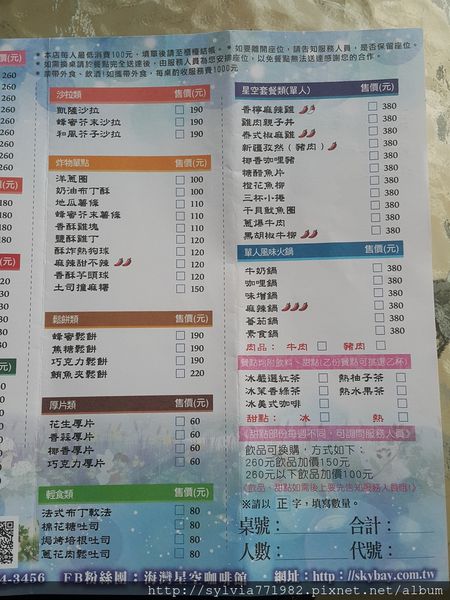 *本店每人最低消費100元，填單後請至櫃檯結帳。 *如要離開座位，請告知服務人員，是否保留座位。
*如需換桌請於餐點完全送達後，由服務人員為您安排座位，以免餐點無法送達感謝您的合作。
*禁帶外食、飲酒！如攜帶外食，每桌酌收服務費1000元
沙拉類 售價(元)
凱薩沙拉 190
蜂蜜芥末沙拉 190
和風芥子沙拉 190
炸物單點 售價(元)
洋蔥圈 100
奶油布丁酥 100
地瓜薯條 110
蜂蜜芥末薯條 110
香酥雞塊 110
鹽酥雞丁 120
酥炸熱狗球 120
麻辣甜不辣 120
香酥芋頭球 120
土司撞麻糬 150
鬆餅類 售價(元)
蜂蜜鬆餅 190
焦糖鬆餅 190
巧克力鬆餅 190
鯛魚夾鬆餅 220
厚片類 售價(元)
花生厚片 60
香蒜厚片 60
椰香厚片 60
巧克力厚片 60
輕食類 售價(元)
法式布丁軟法 80
棉花糖吐司 80
焗烤培根吐司 80
蔥花肉鬆吐司 80
星空套餐類(單人) 售價(元)
香檸麻辣雞 380
雞肉親子丼 380
泰式椒麻雞 380
新疆孜然(豬肉) 380
椰香咖哩豬 380
糖醋魚片 380
橙花魚柳 380
三杯小捲 380
干貝魷魚圈 380
蔥爆牛肉 380
黑胡椒牛柳 380
單人風味火鍋 售價(元)
牛奶鍋 380
咖哩鍋 380
味增鍋 380
麻辣鍋 380
蕃茄鍋 380
素食鍋 380
肉品： 牛肉 豬肉
餐點均附飲料、甜點(乙份餐點可挑選乙杯)
冰嚴選紅茶 熱柚子茶
冰茉香綠茶 熱水果茶
冰美式咖啡
甜點： 冰 熱
《甜點部份每週不同，可詢問服務人員》
飲品可換購，方式如下：
260元飲品加價150元
260元以下飲品加價100元
《飲品、甜點如需後上要先告知服務人員唷!》
※請以 正 字，填寫數量。
桌號： 合計：
人數： 代號：
4-3456 FB粉絲團：海灣星空咖啡館 網址：http://skybay.com.tw
http://sylvia771982.pixnet.net/album